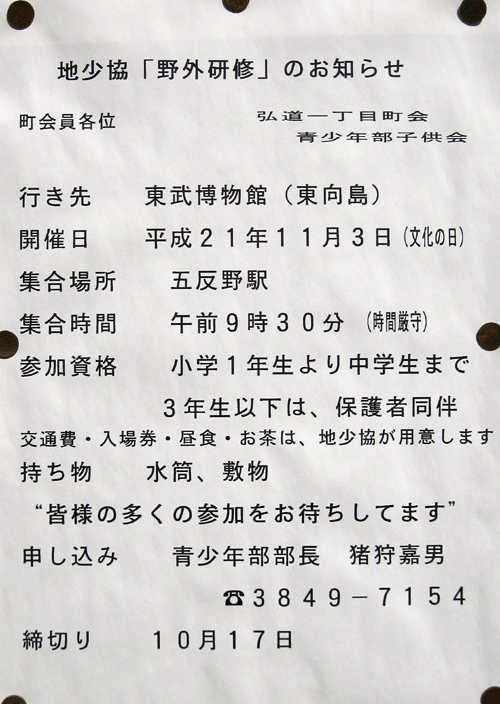 地少協「野外研修」のお知らせ
町会員各位
弘道一丁目町会
青少年部子供会
行き先　東武博物館（東向島）
開催日　平成２１年１１月３日（文化の日）
集合場所　五反野駅
集合時間　午前９時３０分　（時間厳守）
参加資格　小学１年生より中学生まで
３年生以下は、保護者同伴
交通費・入場券・昼食・お茶は、地少協が用意します
持ち物　水筒、敷物
“皆様の多くの参加をお待ちしてます”
申し込み　青少年部部長　猪狩嘉男
☎３８４９－７１５４
締切り　１０月１７日